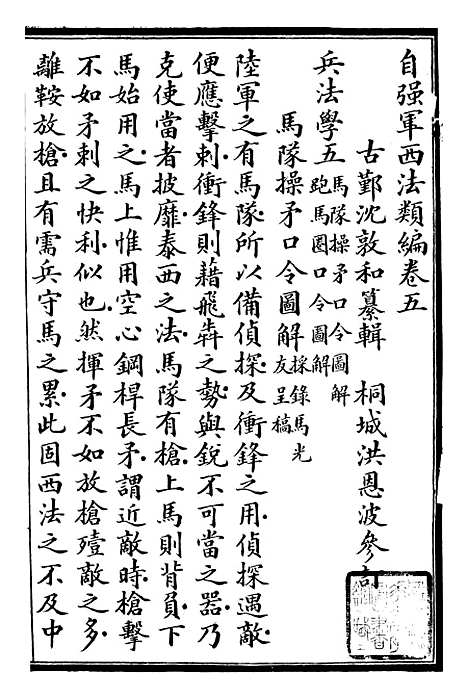 自强軍西法類編卷五
古鄞沈敦和纂輯　桐城洪恩波參訂
兵法學五 馬隊操矛口令圖解 跑馬圈口令圖解
馬隊操矛口令圖解 採錄馬光友呈稿
陸軍之有馬隊所以備偵探及衝鋒之用偵探遇敵
便應擊刺衝鋒則藉飛犇之勢與銳不可當之器乃
克使當者披靡泰西之法馬隊有槍上馬則背負下
馬始用之馬上惟用空心鋼桿長矛謂近敵時槍擊
不如矛刺之快利似也然揮矛不如放槍殪敵之多
離鞍放槍且有需兵守馬之累此固西法之不及中